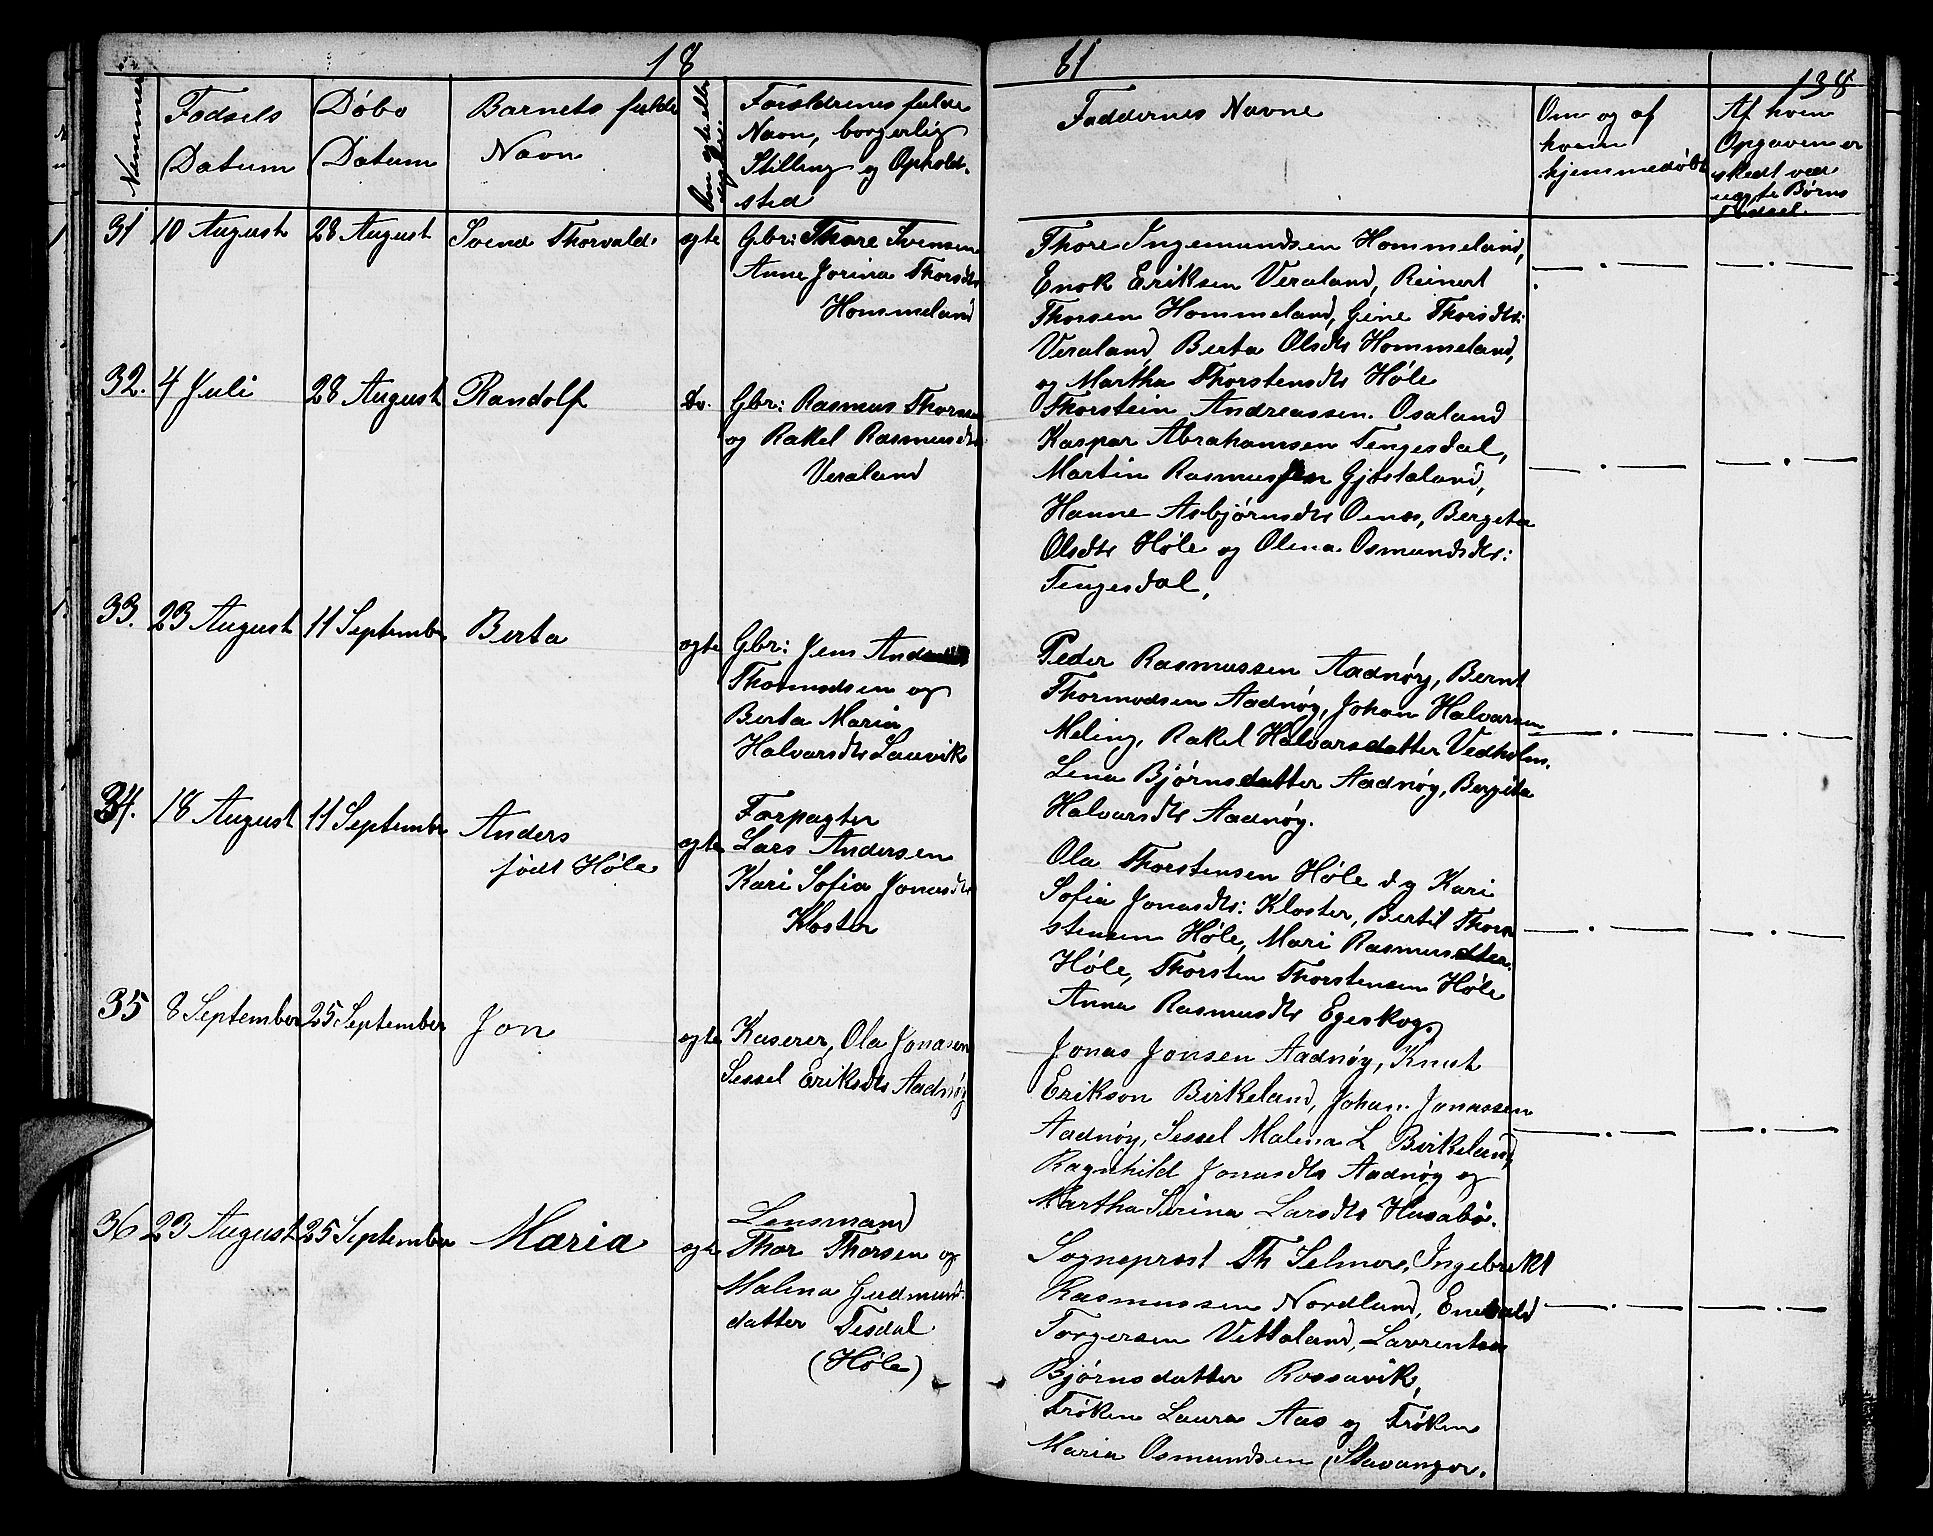 18 81
138
Nummer
Fødsels Datum
Døbs Datum
Barnets fulde Navn
Om ægte eller uægte.
Forældrenes fulde
Navn, borgerlig
Stilling og Opholds-
sted
Faddernes Navne
Om og af
hvem
hjemmedøbt
Af hvem
Opgaven er
skedt ved
uægte Børns
Fødsel.
31 10 August 28 August Svend Thorvald. ægte
Gbr: Thore Svensen
Anne Jorina Thorsdtr
Hommeland
Thore Ingemundsen Hommeland,
Enok Eriksen Veraland, Reinert
Thorsen Hommeland, Gine Thorsdtr:
Veraland, Berta Olsdtr Hommeland,
og Martha Thorstensdtr Høle
32. 4 Juli 28 August Randolf Do.
Gbr: Rasmus Thorsen
og Rakel Rasmusdtr
Veraland
Thorstein Andreassen. Osaland
Kaspar Abrahamsen Tengesdal,
Martin Rasmussen Gjøstaland,
Hanne Asbjørnsdtr Oenes, Bergita
Olsdtr Høle og Olena Osmundsdtr:
Tengesdal,
33. 23 August 11 September Berta ægte
Gbr: Jens
Thormodsen og
Berta Maria
Halvarsdtr Lauvik
Peder Rasmussen Aadnøy, Bernt
Thormodsen Aadnøy, Johan Halvarsen
Meling, Rakel Halvarsdatter Vedholm.
Lena Bjørnsdatter Aadnøy, Bergita
Halvarsdtr Aadnøy.
34. 18 August 11 September Anders
født Høle
ægte
Forpagter
Lars Andersen
Kari Sofia Jonasdtr
Kloster
Ola Thorstensen Høle og Kari
Sofia Jonasdtr: Kloster, Bertil Thor
stensen Høle, Mari Rasmusdtter.
Høle, Thorsten Thorstensen Høle
Anna Rasmusdtr Egeskog,
35 8 September 25 September Jon ægte
Kaserer, Ola Jonasen
Sessel Eriksdtr Aadnøy
Jonas Jonsen Aadnøy, Knut
Erikson Birkeland, Johan Jonassen
Aadnøy, Sessel Malena L Birkeland,
Ragnhild Jonasdtr Aadnøy og
Martha Serina Larsdtr Husabø.
36 23 August 25 September Maria ægte
Lensmand
Thor Thorsen og
Malena Gudmund.
datter Tesdal
(Høle)
Sogneprest Th Selmer, Ingebrekt
Rasmussen Nordlund, Enevald
Torgersen Vettaland, Lavrentsa
Bjørnsdatter Rossavik,
Frøken Laura Aas og Frøken
Maria Osmundsen (Stavanger.